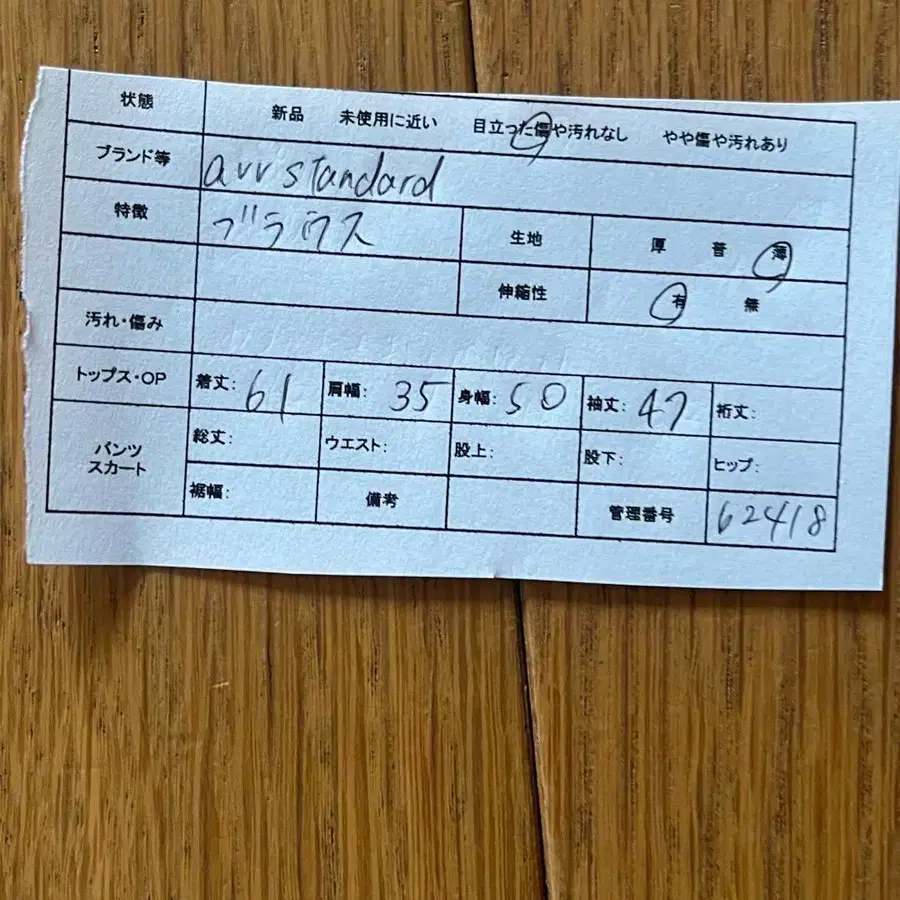 状態 新品 未使用に近い 目立った傷や汚れなし やや傷や汚れあり
ブランド等 avv standard
特徴 ブラウス 生地 厚 普 薄
伸縮性 有 無
汚れ・傷み
トップス・OP 着丈: 61 肩幅: 35 身幅: 50 袖丈: 47 裄丈:
パンツ スカート 総丈: ウエスト: 股上: 股下: ヒップ:
裾幅: 備考 管理番号 62418